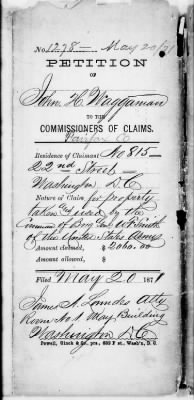 No. 1278— May 20/71
PETITION
OF
John H. Waggaman
TO THE
COMMISSIONERS OF CLAIMS.
Fairfax Co
Residence of Claimant No 815—
22nd Street—
Washington D.C
Nature of Claim for property
taken and used by the
Command of Brig Genl
of the United States Army
Amount claimed, $ 2060.00
Amount allowed, $
Filed May 20 1871
James A. Lowndes Atty
Room No 1 May Building
Washington D.C
Powell, Ginck & Co., prs., 632 F st., Wash'n, D. C.